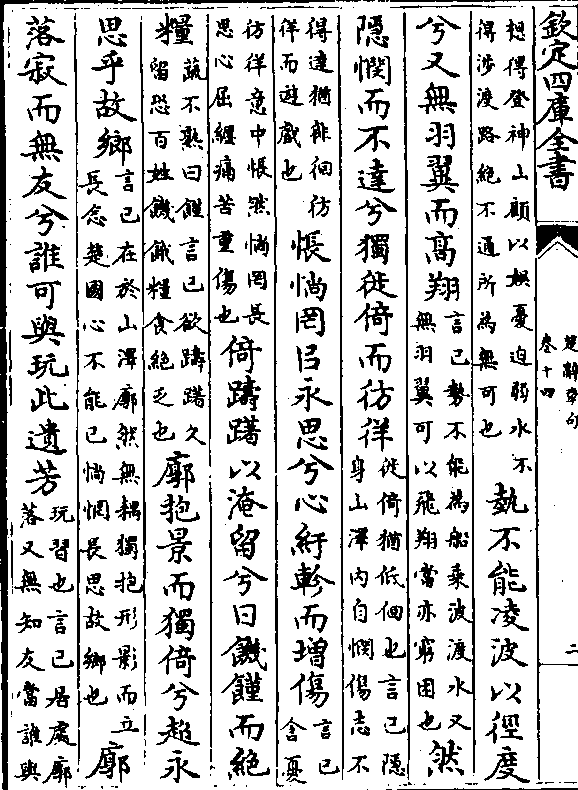 欽定四庫全書
楚辭章句
卷十四
二
想得登神山顧以娛憂迫弱水不
得涉渡路絕不通所為無可也
埶不能凌波以徑度
兮又無羽翼而高翔
言己勢不能為船乘波渡水又
無羽翼可以飛翔當亦窮困也
然
隱憫而不達兮獨徙倚而彷徉
徙倚猶低佪也言己隱
身山澤內自憫傷志不
得達猶徘徊彷
徉而遊戲也
悵惝罔㠯永思兮心紆軫而增傷
言己
含憂
彷徉意中悵然惝罔長
思心屈纏痛苦重傷也
倚躊躇以淹留兮日饑饉而絕
糧
蔬不熟曰饉言己欲躊躇久
留恐百姓饑餓糧食絕乏也
廓抱景而獨倚兮超永
思乎故鄉
言己在於山澤廓然無耦獨抱形影而立
長念楚國心不能已惝惘長思故鄉也
廓
落寂而無友兮誰可與玩此遺芳
玩習也言己居處廓
落又無知友當誰與